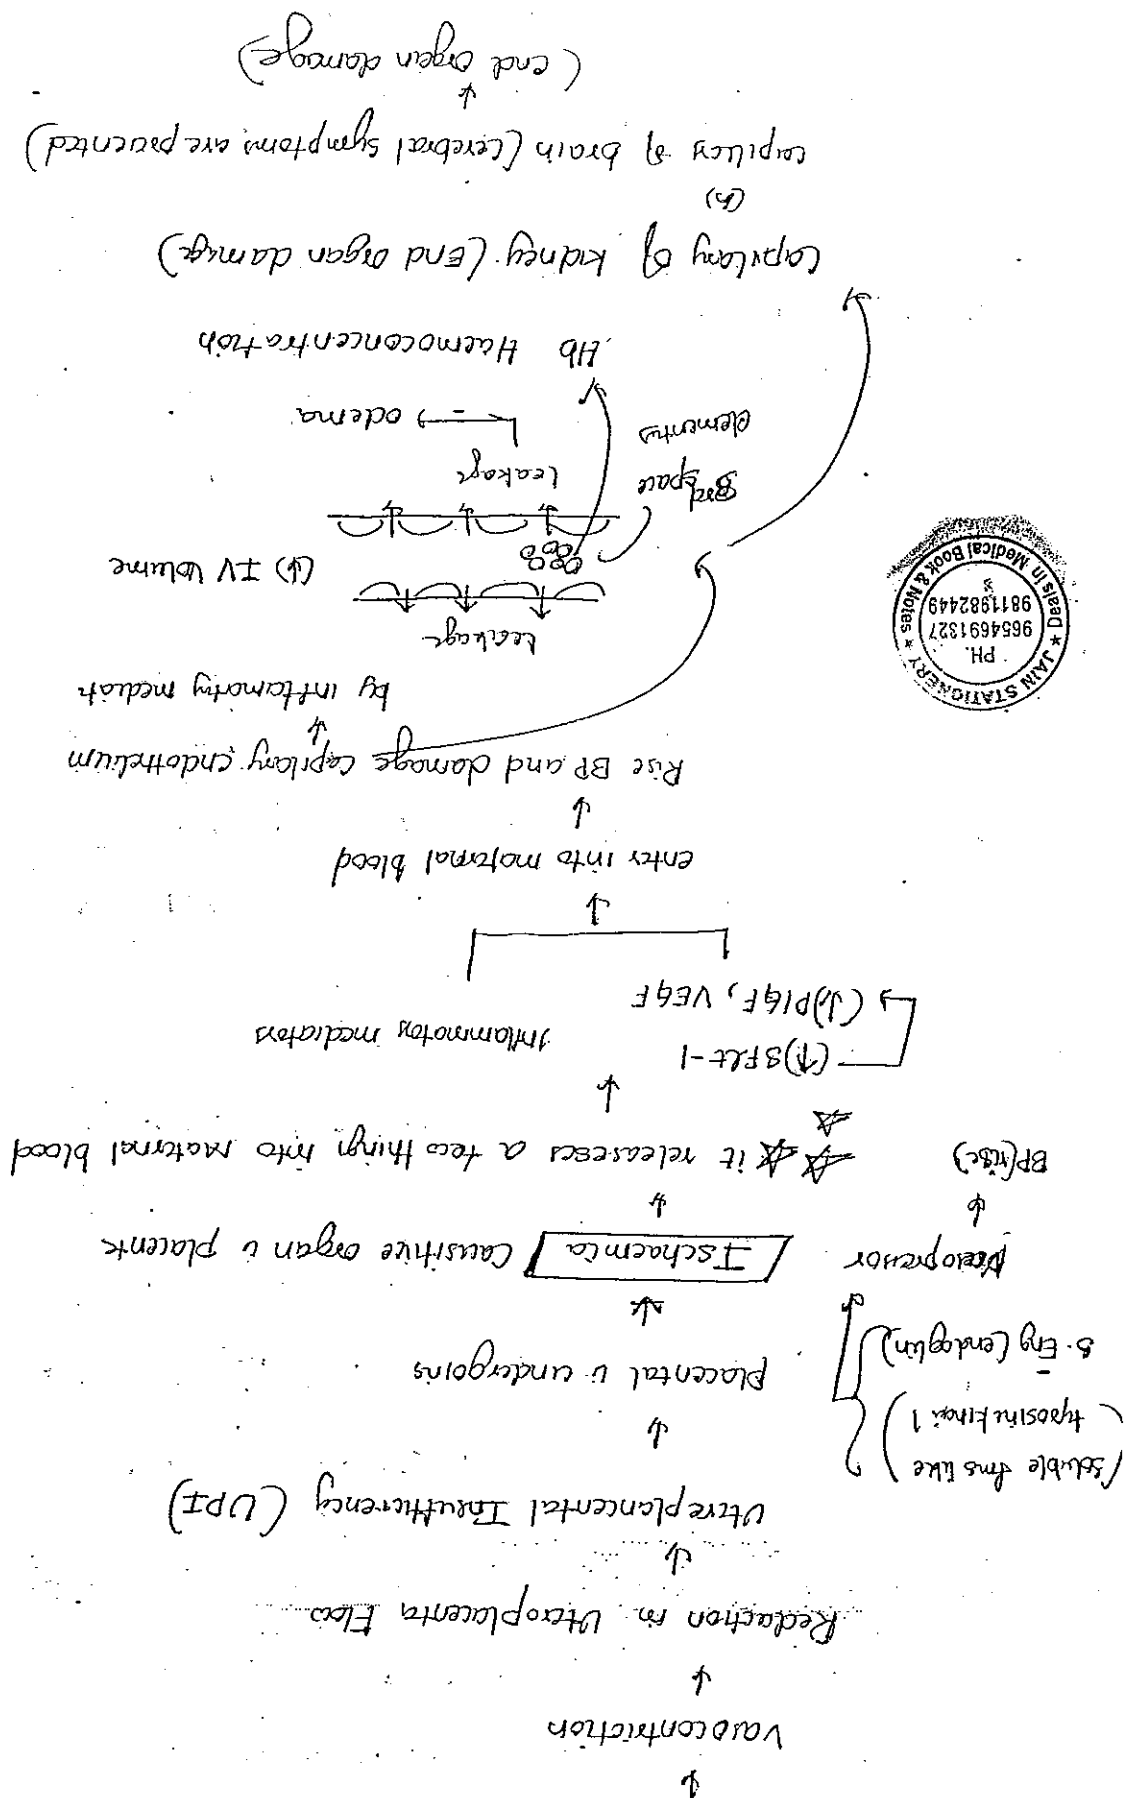 ↓
Vasocontriction
↓
Redaction in Uteroplacenta Flow
↓
Uterplancental Insufficiency (UPI)
↓
Placental is undergoins
↓
Ischaemia Causitive organ is placente
↓
it releaseses a few things into maternal blood
↓
(soluble fms like
tyrosine kinase 1)
S-Eng (endoglin)
Vasopressor
↓
BP(rise)
(↑) SFlt-1
(↓) PlGF, VEGF
Inflammatory mediators
↓
enter into maternal blood
↓
Rise BP and damage capilary endothelium
↓
by inflamatory mediatr
Leakage
(↓) IV Volume
Leakage
→ odema
3rd space
elements
Hb Haemoconcentration
Capilary of kidney (End organ damage)
(n)
capilicy of brain (Cerebral symptoms are pscuented)
↓
(end organ damage)
* JAIN STATIONERY *
PH.
9654691327
9811982449
Deals in Medical Book & Notes